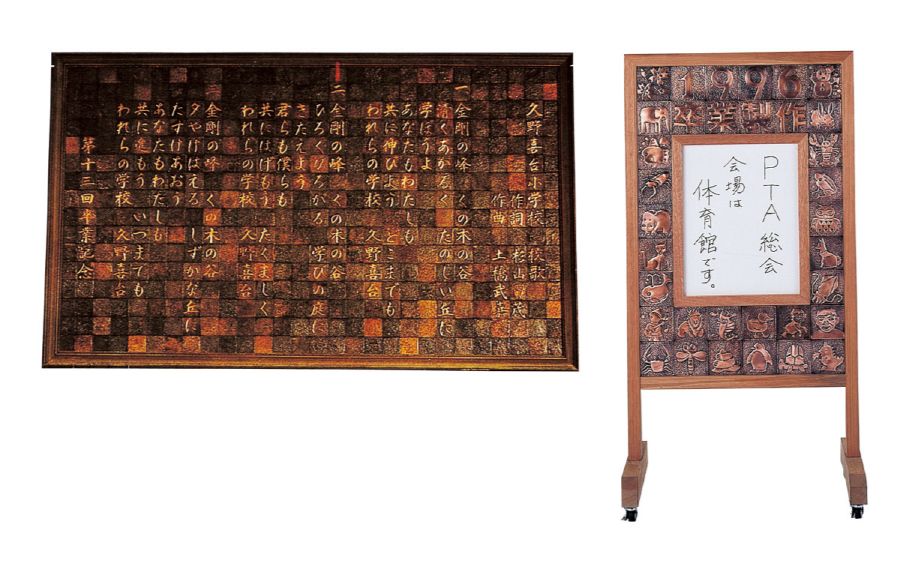 久野喜台小学校 校歌
作詞 杉山
作曲 土橋武
一 金剛の峰 くの木の谷
清くあかるく たのしい丘に
学ぼうよ
あなたもわたしも
共に伸びよう どこまでも
われらの学校 久野喜台
二 金剛の峰 くの木の谷
ひろくひろがる 学びの庭に
きたえよう
君らも僕らも
共にはげもう たくましく
われらの学校 久野喜台
三 金剛の峰 くの木の谷
夕やけはえる しずかな丘に
たすけあおう
あなたもわたしも
共に進もう いつまでも
われらの学校 久野喜台
第十三回卒業記念
1996
卒業製作
PTA総会
会場は
体育館です。